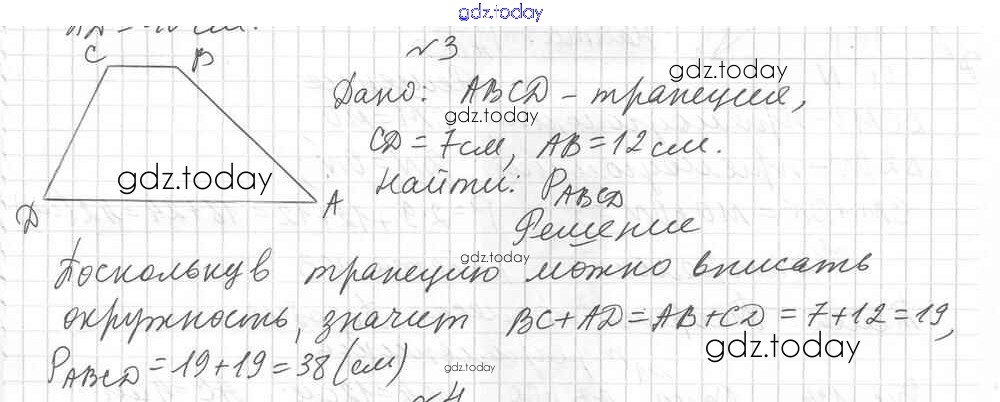 gdz.today
C B
№3
gdz.today
Дано: ABCD – трапеция,
gdz.today
CD = 7см, AB = 12 см.
gdz.today
Найти: P_ABCD
D A
Решение
gdz.today
Поскольку в трапецию можно вписать
окружность, значит BC + AD = AB + CD = 7 + 12 = 19,
gdz.today
P_ABCD = 19 + 19 = 38 (см)
gdz.today
№4